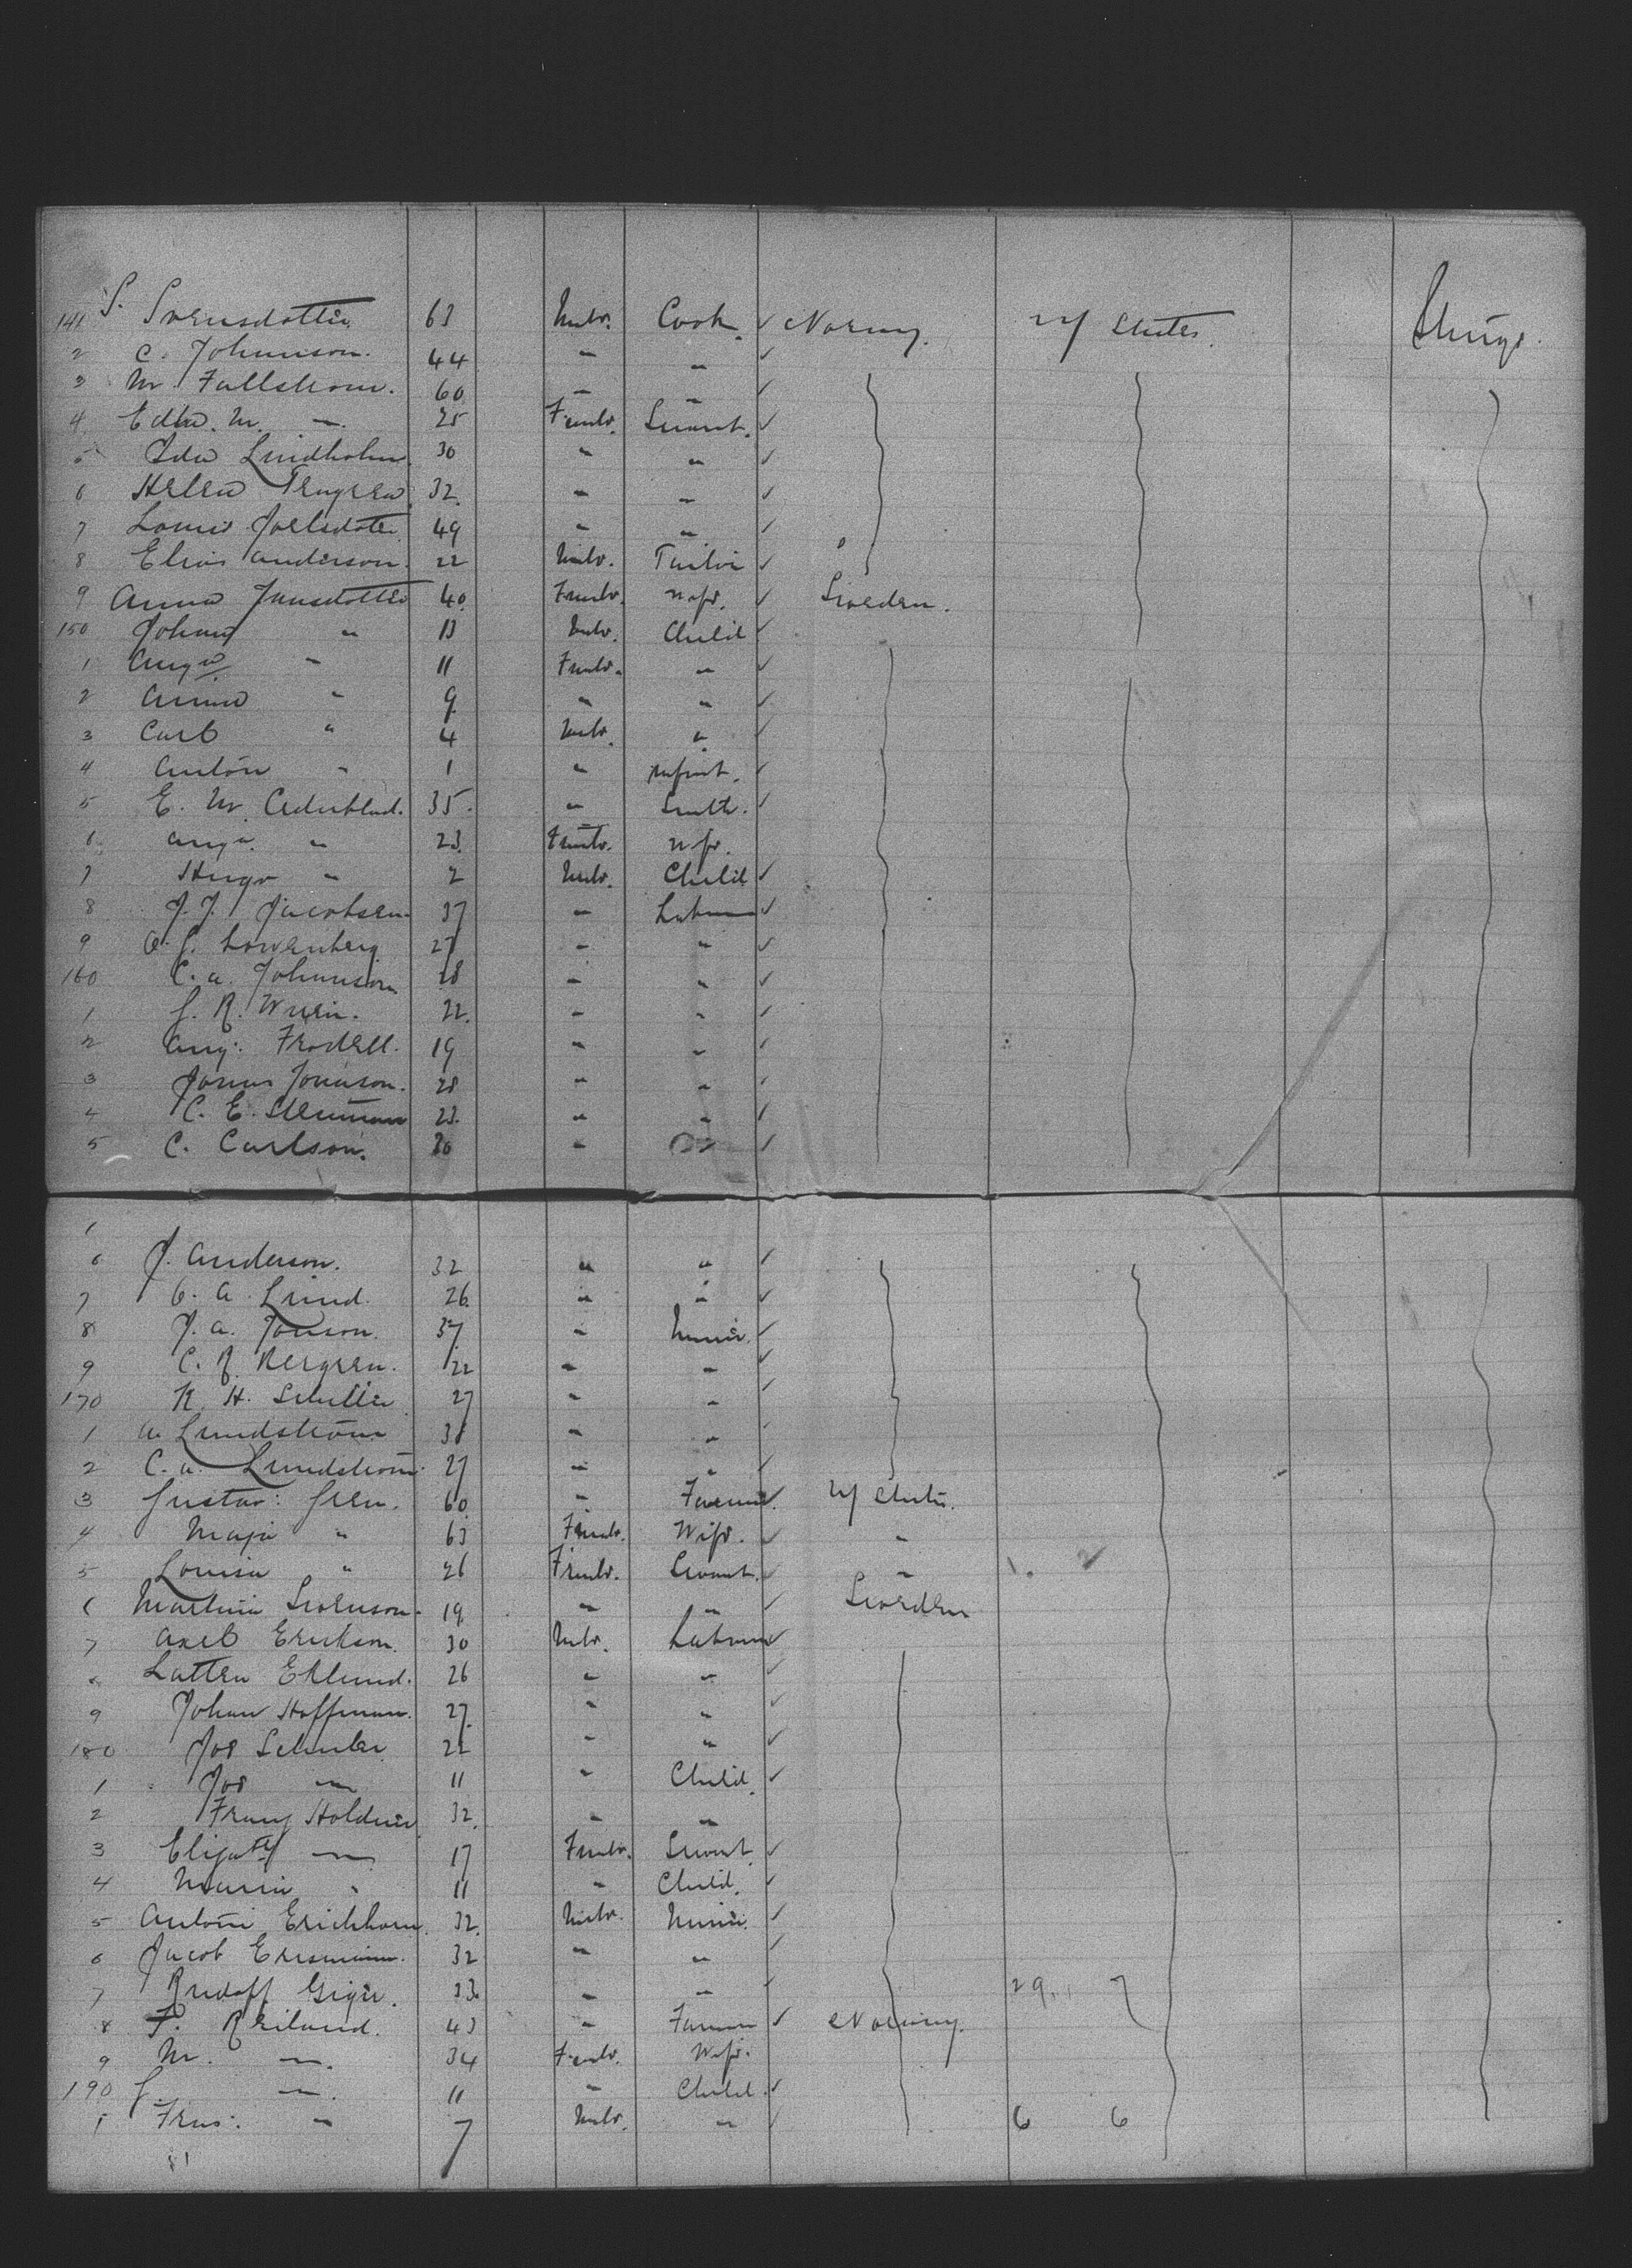 141 S. Svensdotter 63 Male. Cook Norway. U/ States. Steerge.
2 C. Johanson. 44 " "
3 M. Fallstrom. 60 " "
4 Edla. M. " 25 Female. Servant.
5 Ida Lindholm 30 " "
6 Helena Tengren 32 " "
7 Joelsdotter 49 " "
8 Elias Anderson. 22 Male. Tailor
9 Anna Jansdotter 40. Female. Wife. Sweden.
150 Johan " 13 Male. Child
1 Auga " 11 Female. "
2 Anna " 9 " "
3 Carl " 4 Male. "
4 Anton " 1 " Infant.
5 E. M. Cederblad. 35. " Smith.
6 Auga. " 23. Female. Wife.
7 Hugo " 2 Male. Child
8 J. J. Jacobsen 37 " Laborer
9 Lowenberg 27 " "
160 C. A. Johanson 28 " "
1 22. " "
2 Aug. Frodell. 19 " "
3 Jonas Jonason. 28 " "
4 C. E. 23. " "
5 C. Carlson. 30 "
1
6 J. Anderson. 32 " "
7 A. Lind. 26 " "
8 J. A. Jonson. 37 " Miner.
9 C. Bergren. 22 " "
170 H. 27 " "
1 A. Lundstrom 38 " "
2 C. A. Lundstrom 27 " "
3 Gustav: Gren. 60 " Farmer. U/ States.
4 Maja " 63 Female. Wife. "
5 Louisa " 26 Female. Servant. "
6 Martina Svenson. 19 " " Sweden
7 Axel Erickson. 30 Male. Laborer
8 Eklund. 26 " "
9 Johan Hoffman. 27. " "
180 Jos 22 " "
1 Jos " 11 " Child
2 Franz Holdner 32. " "
3 Elizath " 17 Female. Servant
4 Maria " 11 " Child.
5 Antoni 32. Male. Miner.
6 Jacob 32 " "
7 Rudolf Giger. 33. " " 29. 7
8 F. Reiland. 43 " Farmer Norway.
9 M. " 34 Female. Wife.
190 " 11 " Child.
1 " 7 Male. " 6 6